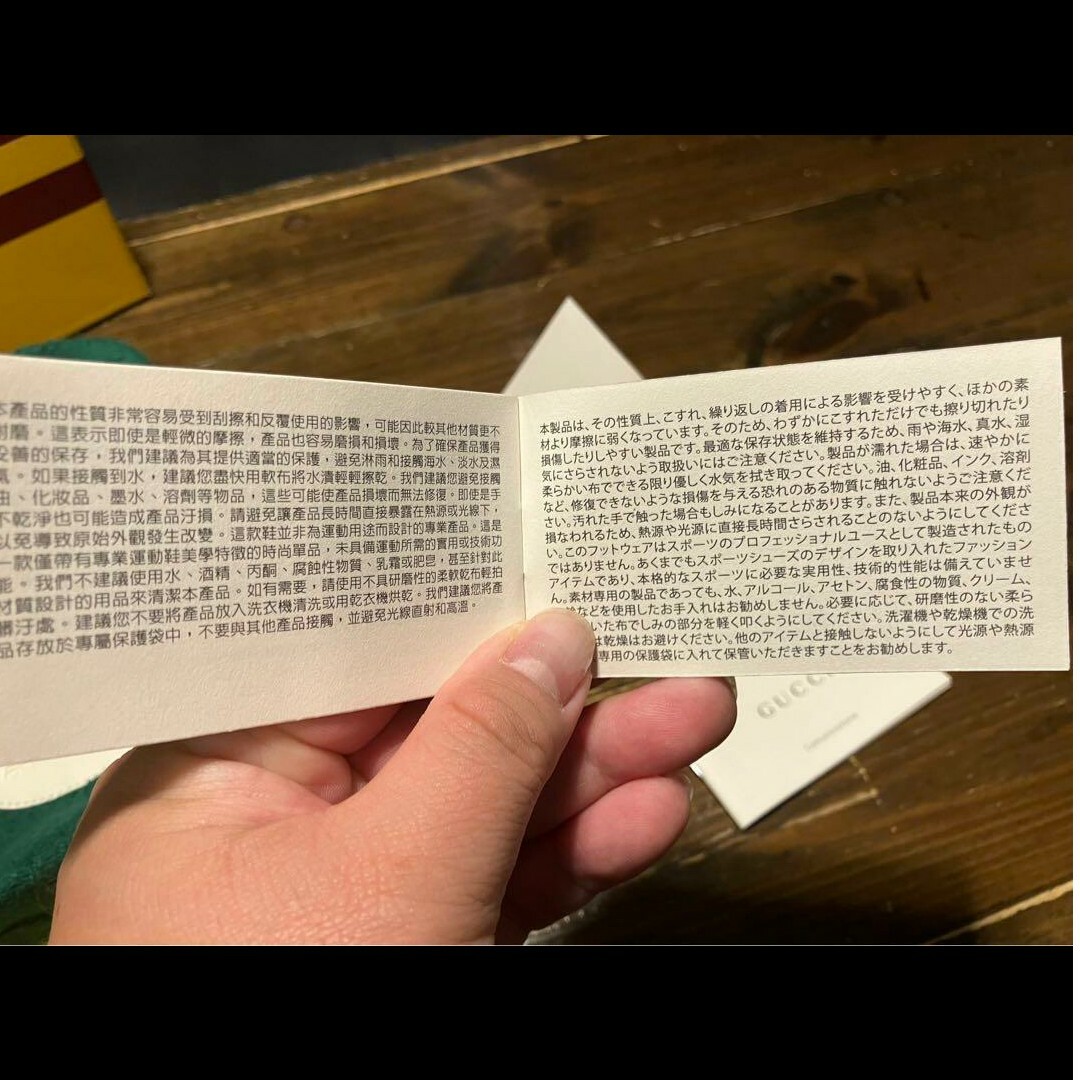 本產品的性質非常容易受到刮擦和反覆使用的影響，可能因此較其他材質更不
耐磨。這表示即使是輕微的摩擦，產品也容易磨損和損壞。為了確保產品獲得
妥善的保存，我們建議為其提供適當的保護，避免淋雨和接觸海水、淡水及濕
氣。如果接觸到水，建議您盡快用軟布將水漬輕輕擦乾。我們建議您避免接觸
油、化妝品、墨水、溶劑等物品，這些可能使產品損壞而無法修復。即使是手
不乾淨也可能造成產品汙損。請避免讓產品長時間直接暴露在熱源或光線下，
以免導致原始外觀發生改變。這款鞋並非為運動用途而設計的專業產品。這是
一款僅帶有專業運動鞋美學特徵的時尚單品，未具備運動所需的實用或技術功
能。我們不建議使用水、酒精、丙酮、腐蝕性物質、乳霜或肥皂，甚至針對此
材質設計的用品來清潔本產品。如有需要，請使用不具研磨性的柔軟乾布輕拍
髒汙處。建議您不要將產品放入洗衣機清洗或用乾衣機烘乾。我們建議您將產
品存放於專屬保護袋中，不要與其他產品接觸，並避免光線直射和高溫。
本製品は、その性質上、こすれ、繰り返しの着用による影響を受けやすく、ほかの素
材より摩擦に弱くなっています。そのため、わずかにこすれただけでも擦り切れたり
損傷したりしやすい製品です。最適な保存状態を維持するため、雨や海水、真水、湿
気にさらされないよう取扱いにはご注意ください。製品が濡れた場合は、速やかに
柔らかい布でできる限り優しく水気を拭き取ってください。油、化粧品、インク、溶剤
など、修復できないような損傷を与える恐れのある物質に触れないようご注意くだ
さい。汚れた手で触った場合もしみになることがあります。また、製品本来の外観が
損なわれるため、熱源や光源に直接長時間さらされることのないようにしてくださ
い。このフットウェアはスポーツのプロフェッショナルユースとして製造されたもの
ではありません。あくまでもスポーツシューズのデザインを取り入れたファッション
アイテムであり、本格的なスポーツに必要な実用性、技術的性能は備えていませ
ん。素材専用の製品であっても、水、アルコール、アセトン、腐食性の物質、クリーム、
などを使用したお手入れはお勧めしません。必要に応じて、研磨性のない柔ら
いた布でしみの部分を軽く叩くようにしてください。洗濯機や乾燥機での洗
は乾燥はお避けください。他のアイテムと接触しないようにして光源や熱源
専用の保護袋に入れて保管いただきますことをお勧めします。
GUCCI